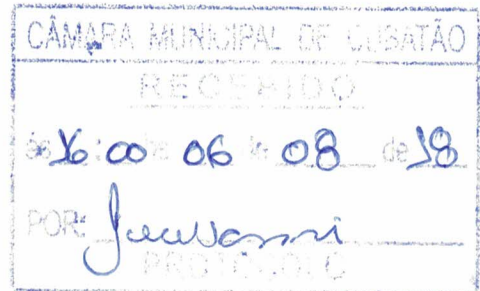 CÂMARA MUNICIPAL DE CUBATÃO
RECEBIDO
às 16:00 de 06 de 08 de 18
POR:
PROTOCOLO